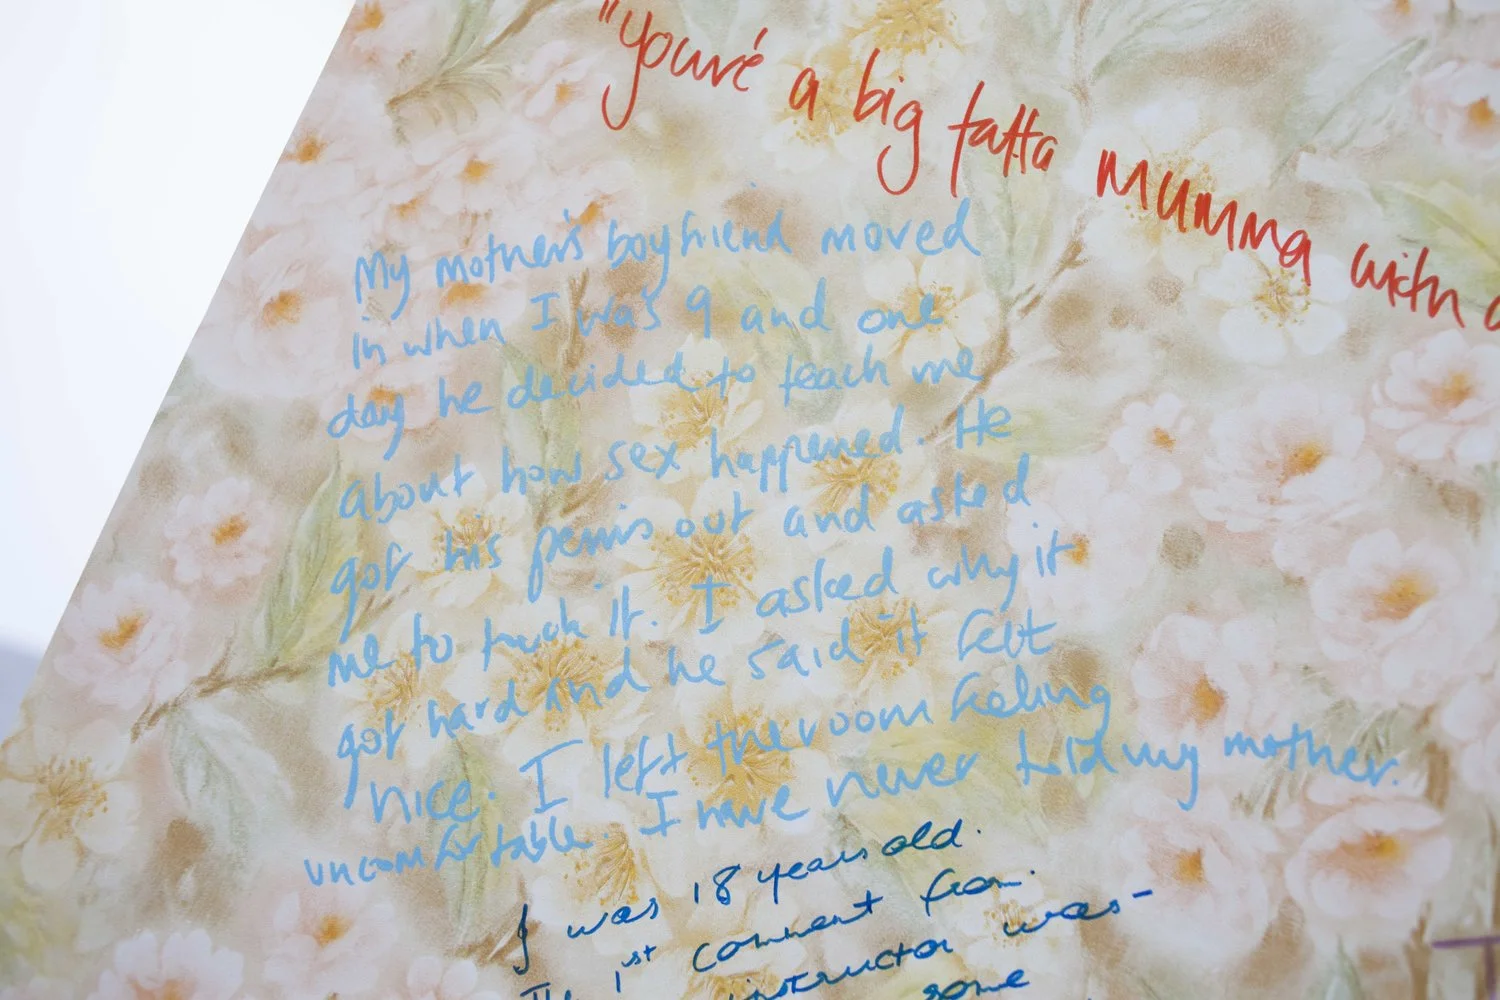 "You're a big fatta mumma with a
My mother's boyfriend moved
in when I was 9 and one
day he decided to teach me
about how sex happened. He
got his penis out and asked
me to touch it. I asked why it
got hard and he said it felt
nice. I left the room feeling
uncomfortable. I have never told my mother.
I was 18 years old.
The 1st comment from
instructor was-
some